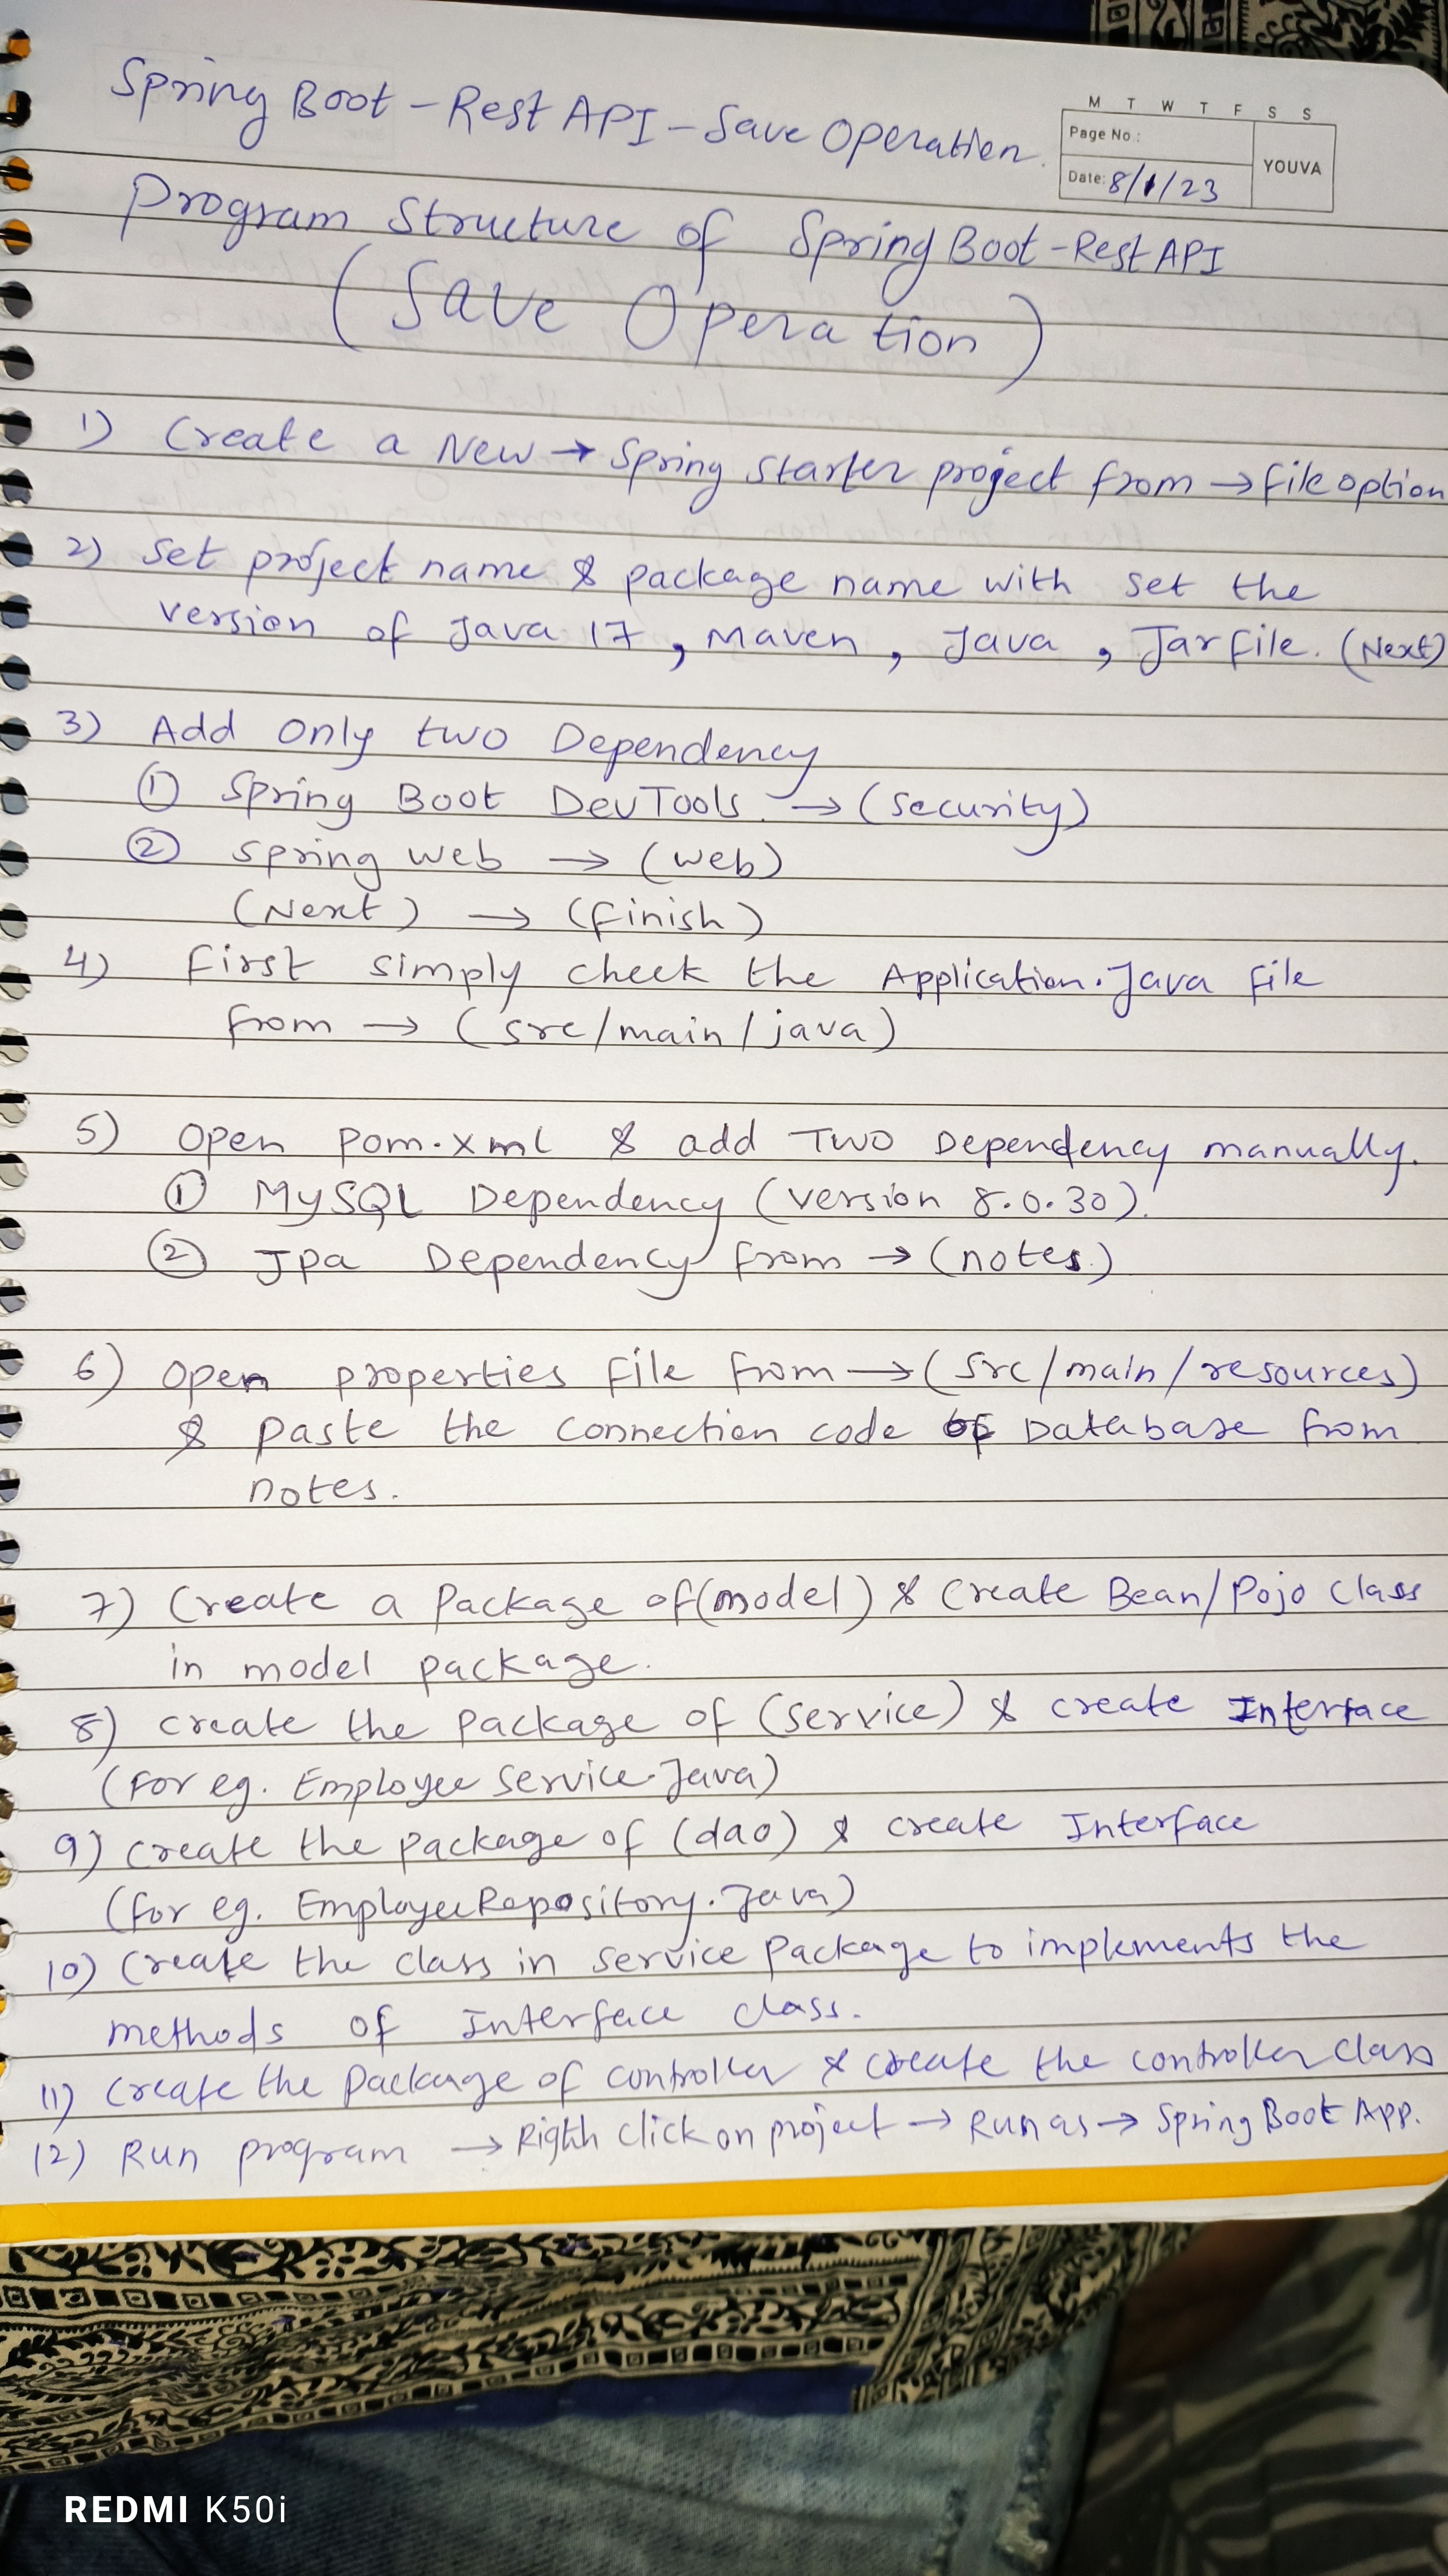 Spring Boot - Rest API - Save Operation.
M T W T F S S
Page No.:
YOUVA
Date: 8/1/23
Program Structure of Spring Boot - Rest API
(Save Operation)
1) Create a New → Spring starter project from → file option
2) Set project name & package name with set the
version of Java 17, Maven, Java, Jar file. (Next)
3) Add only two Dependency
① Spring Boot DevTools. → (security)
② Spring web → (web)
(Next) → (finish)
4) First simply check the Application.Java file
from → (src/main/java)
5) Open pom.xml & add TWO Dependency manually.
① MySQL Dependency (version 8.0.30).
② Jpa Dependency from → (notes.)
6) Open properties file from → (src/main/resources)
& paste the connection code of Database from
notes.
7) Create a Package of (model) & Create Bean/Pojo Class
in model package.
8) create the package of (service) & create Interface
(For eg. Employee Service.Java)
9) create the package of (dao) & create Interface
(for eg. EmployeeRepository.Java)
10) Create the class in service Package to implements the
methods of Interface class.
11) Create the package of controller & create the controller class
12) Run program → Righh click on project → Run as → Spring Boot App.
REDMI K50i